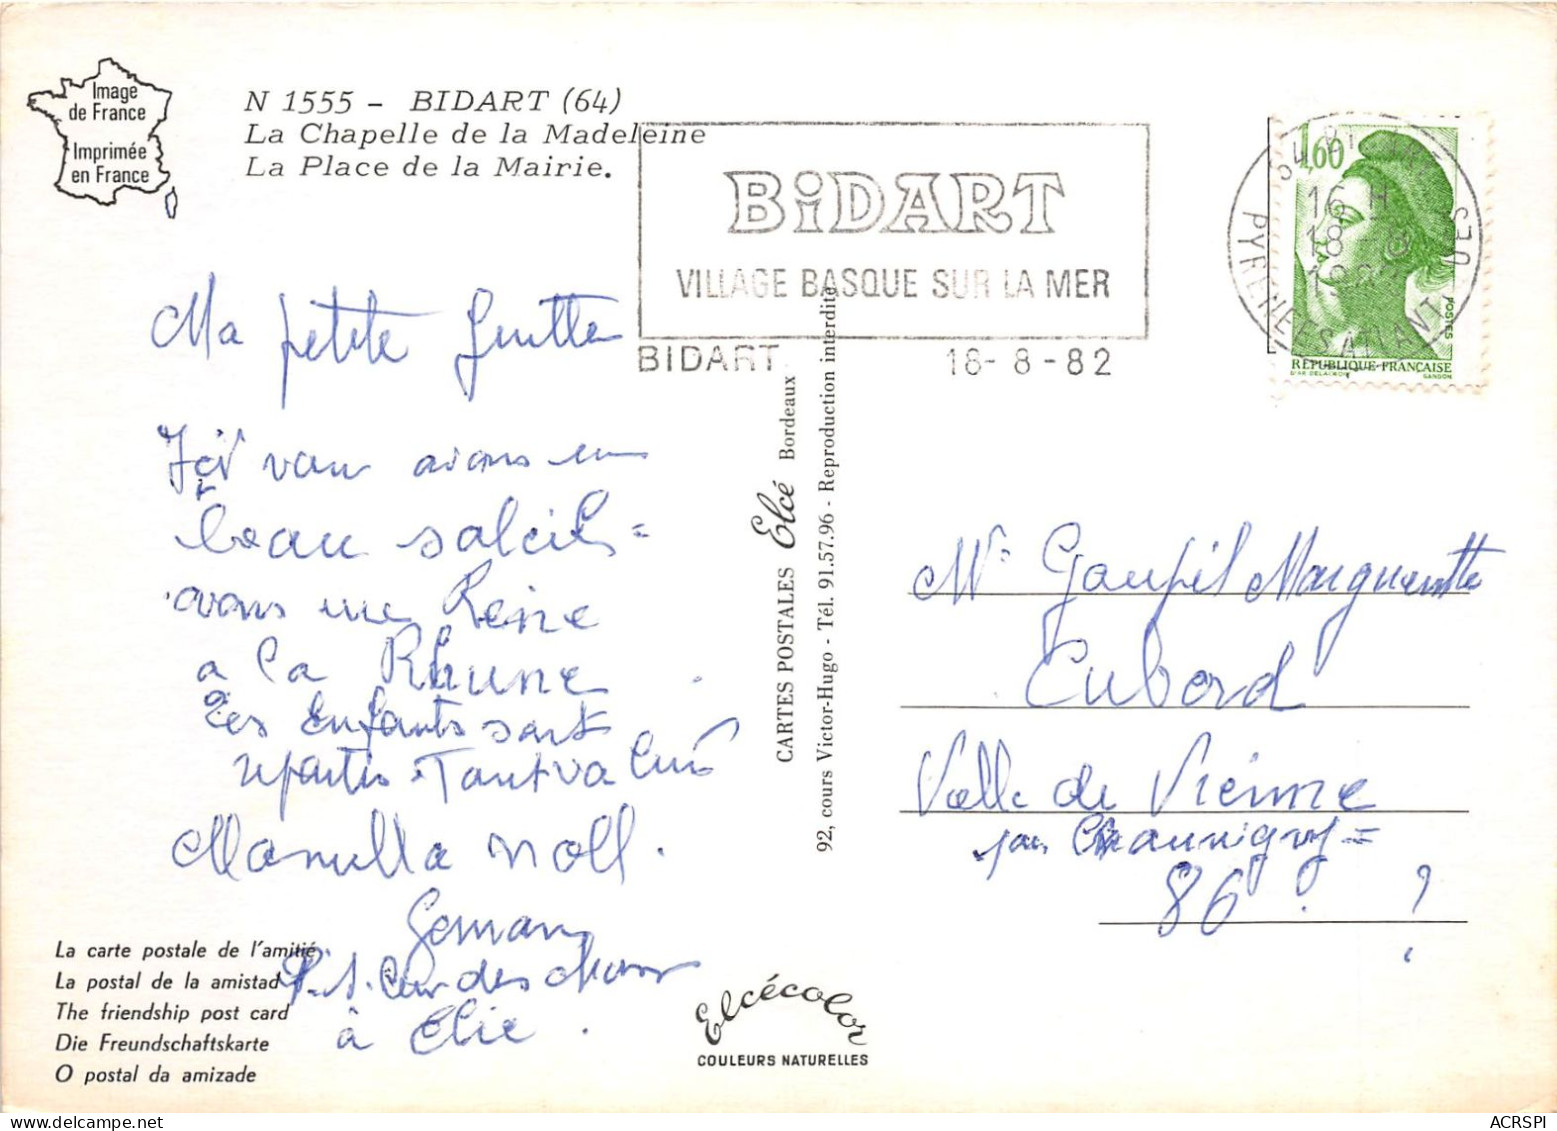 Image
de France
Imprimée
en France
N 1555 - BIDART (64)
La Chapelle de la Madeleine
La Place de la Mairie.
BiDART
VILLAGE BASQUE SUR LA MER
BIDART 18-8-82
16 H
18-8
PYRENEES ATLANTIQUES
1.60
POSTES
RÉPUBLIQUE FRANÇAISE
D'AP. DELACROIX GANDON
Ma petite
avons un
beau soleil =
avons une Reine
a La Rhune
Les Enfants sont
repartis.
Noll.
P.S.
à Elie.
CARTES POSTALES Elcé Bordeaux
92, cours Victor-Hugo - Tél. 91.57.96 - Reproduction interdite
Goupil Marguerite
Cubord
Valle de Vienne
par Chauvigny =
86 ?
La carte postale de l'amitié
La postal de la amistad
The friendship post card
Die Freundschaftskarte
O postal da amizade
Elcécolor
COULEURS NATURELLES
ACRSPI